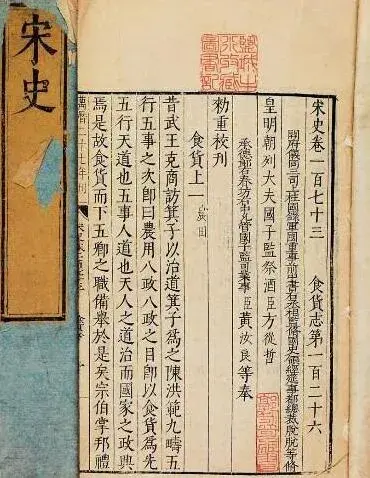 宋史卷一百七十三 食貨志第一百二十六
開府儀同三司上柱國錄軍國重事前中書右丞相監修國史領經筵事都總裁脫脫等修
皇明朝列大夫國子監祭酒臣方從哲
承德郎右春坊右中允管國子監司業事臣黃汝良等奉
勑重校刊
食貨上一 農田
昔武王克商訪箕子以治道箕子爲之陳洪範九疇五
行五事之次即曰農用八政八政之目即以食貨爲先
五行天道也五事人道也天人之道治而國家之政興
焉是故食貨而下五卿之職備舉於是矣宗伯掌邦禮
年刊
食貨
宋史